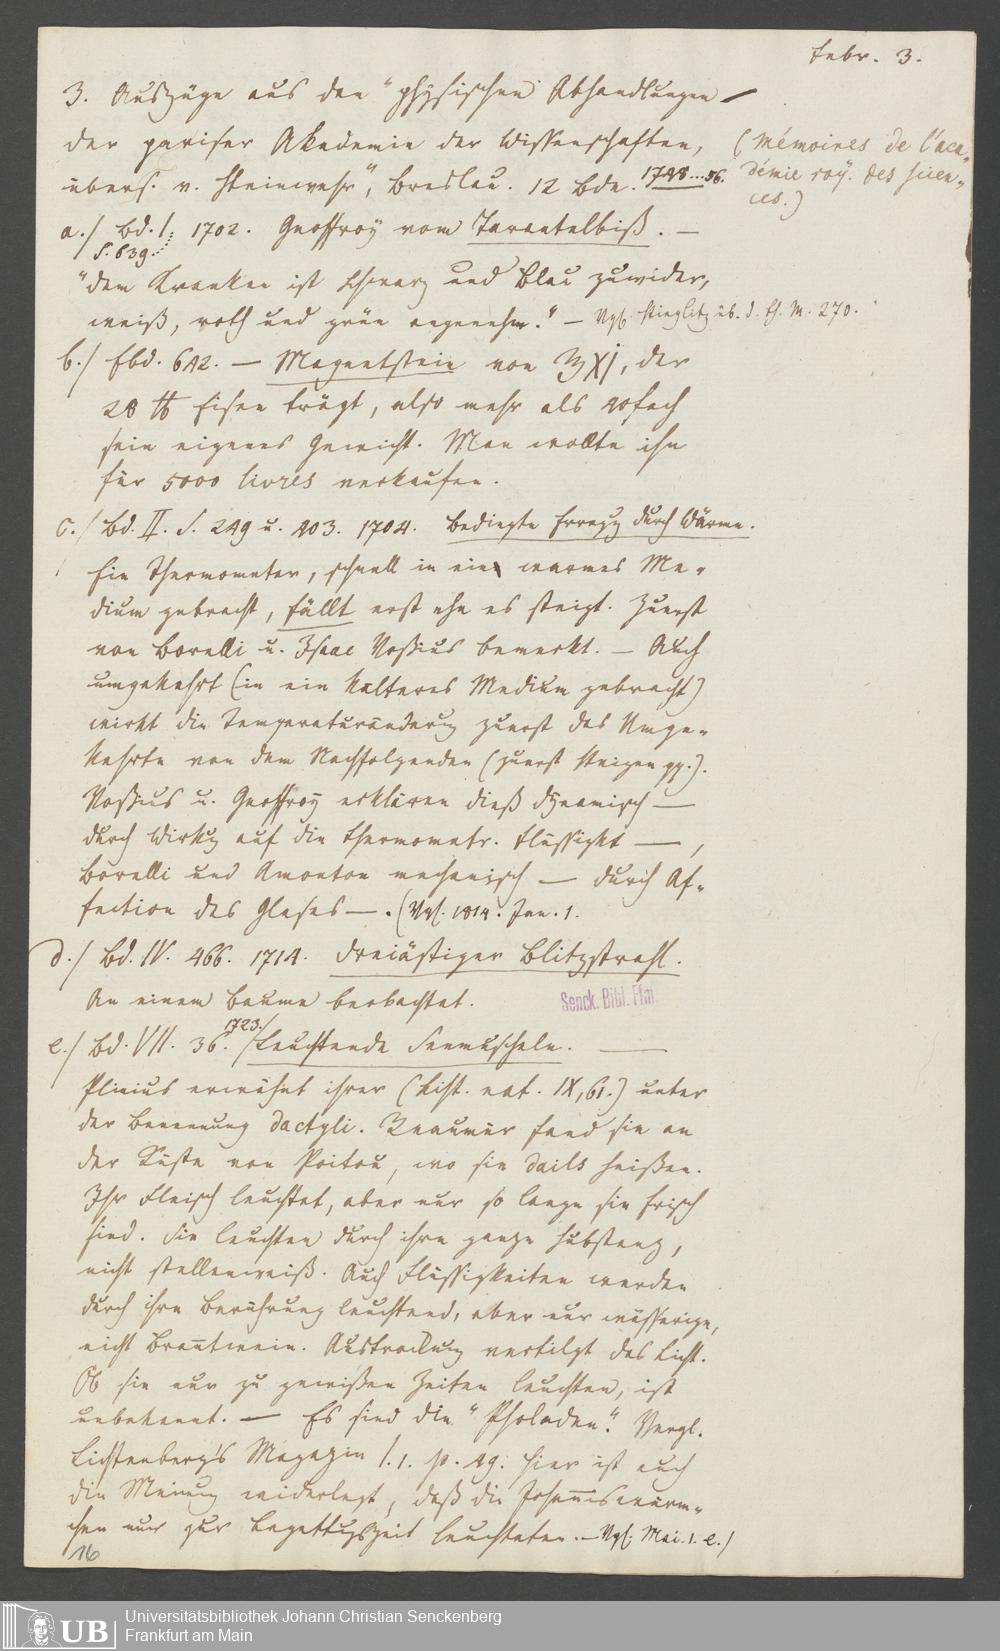 Febr. 3.
3. Auszüge aus den "physischen Abhandlungen
der pariser Akademie der Wissenschaften,
übers. v. Steinwehr", Breslau. 12 Bde. 1748...56.
(Mémoires de l'aca-
démie roÿ. des scien-
ces.)
a./ Bd. I. 1702. Geoffroÿ vom Tarantelbiß. —
S. 639.
"dem Kranken ist schwarz und blau zuwider,
weiß, roth und grün angenehm." — Vgl. Stieglitz üb. d. th. M. 270.
b./ Ebd. 642. — Magnetstein von ℥Xj, der
28 ℔ Eisen trägt, also mehr als 40fach
sein eigenes Gewicht. Man wollte ihn
für 5000 livres verkaufen.
c./ Bd. II. S. 249 u. 403. 1704. Bedingte Erregg durch Wärme.
Ein Thermometer, schnell in ein warmes Me-
dium gebracht, fällt erst ehe es steigt. Zuerst
von Borelli u. Isaac Voßius bemerkt. — Auch
umgekehrt (in ein kälteres Medium gebracht)
wirkt die Temperaturänderug zuerst das Umge-
kehrte von dem Nachfolgenden (zuerst Steigen pp.).
Voßius u. Geoffroÿ erklären dieß dÿnamisch —
durch Wirkg auf die thermometr. Flüssigkt —,
Borelli und Amonton mechanisch — durch Af-
fection des Glases —. (Vgl. 1814. Jan. 1.
d./ Bd. IV. 466. 1714. Dreiästiger Blitzstrahl.
An einem Baume beobachtet.
Senck. Bibl. Ffm.
e./ Bd. VII. 36. 1723./ Leuchtende Seemuscheln. —
Plinius erwähnt ihrer (hist. nat. IX, 61.) unter
der Benennung dactyli. Reaumür fand sie an
der Küste von Poitou, wo sie dails heißen.
Ihr Fleisch leuchtet, aber nur so lange sie frisch
sind. Sie leuchten durch ihre ganze Substanz,
nicht stellenweiß. Auch Flüssigkeiten werden
durch ihre Berührung leuchtend, aber nur wässerige,
nicht Branntwein. Austrocknung vertilgt das Licht.
Ob sie nur zu gewißen Zeiten leuchten, ist
unbekannt. — Es sind die "Pholaden". Vergl.
Lichtenberg's Magazin I. 1. p. 49. Hier ist auch
die Meinung widerlegt, daß die Johanniswürm-
chen nur zur Begattugszeit leuchteten. — Vgl. Mai. 1. e./
16
UB
Universitätsbibliothek Johann Christian Senckenberg
Frankfurt am Main